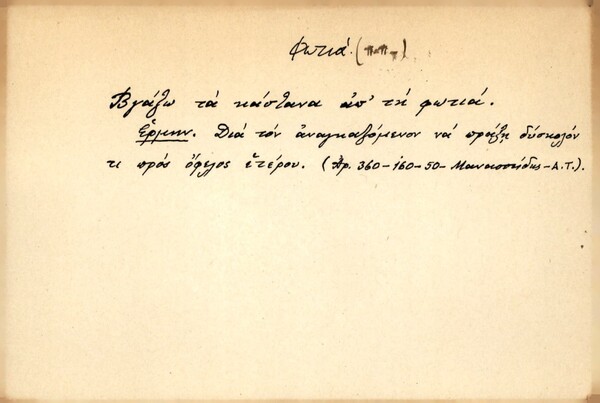 Φωτιά.
Βγάζω τά κάστανα ἀπ' τή φωτιά.
Ἑρμην. Διά τόν ἀναγκαζόμενον νά πράξῃ δύσκολόν
τι πρός ὄφελος ἑτέρου. (Ἀρ. 360-160-50- Μανασσείδης-Α.Τ.).